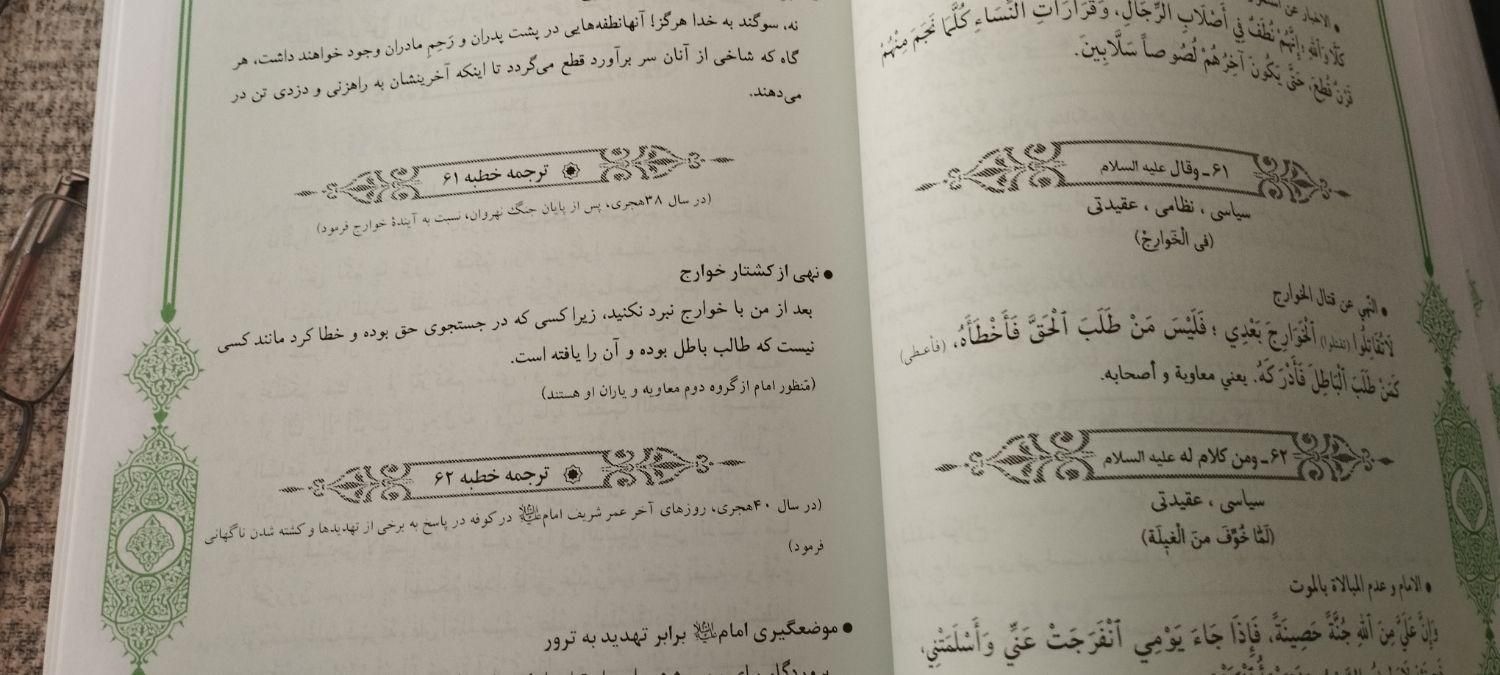 كَلَّا وَاللهِ؛ إِنَّهُمْ نُطَفٌ فِي أَصْلَابِ الرِّجَالِ، وَقَرَارَاتِ النِّسَاءِ كُلَّمَا نَجَمَ مِنْهُمْ
قَرْنٌ قُطِعَ، حَتَّى يَكُونَ آخِرُهُمْ لُصُوصاً سَلَّابِينَ.
۶۱ـ وقال علیه السلام
سیاسی ، نظامی ، عقیدتی
(فی الْخَوارِجْ)
● النّهي عن قتال الخوارج
لَا تُقَاتِلُوا (تقتلوا) ٱلْخَوَارِجَ بَعْدِي ؛ فَلَيْسَ مَنْ طَلَبَ ٱلْحَقَّ فَأَخْطَأَهُ، (فأعطى)
كَمَنْ طَلَبَ ٱلْبَاطِلَ فَأَدْرَكَهُ. يعني معاوية و أصحابه.
۶۲ـ ومن كلام له علیه السلام
سیاسی ، عقیدتی
(لَمّا خُوِّفَ منَ الْغيلَة)
● الامام و عدم المبالاة بالموت
وَإِنَّ عَلَيَّ مِنَ ٱللهِ جُنَّةً حَصِينَةً، فَإِذَا جَاءَ يَوْمِي ٱنْفَرَجَتْ عَنِّي وَأَسْلَمَتْنِي،
نه، سوگند به خدا هرگز! آنهانطفه‌هایی در پشت پدران و رَحِمِ مادران وجود خواهند داشت، هر
گاه که شاخی از آنان سر برآورد قطع می‌گردد تا اینکه آخرینشان به راهزنی و دزدی تن در
می‌دهند.
ترجمه خطبه ۶۱
(در سال ۳۸هجری، پس از پایان جنگ نهروان، نسبت به آیندهٔ خوارج فرمود)
● نهی از کشتار خوارج
بعد از من با خوارج نبرد نکنید، زیرا کسی که در جستجوی حق بوده و خطا کرد مانند کسی
نیست که طالب باطل بوده و آن را یافته است.
(منظور امام از گروه دوم معاویه و یاران او هستند)
ترجمه خطبه ۶۲
(در سال ۴۰هجری، روزهای آخر عمر شریف امام در کوفه در پاسخ به برخی از تهدیدها و کشته شدن ناگهانی
فرمود)
● موضعگیری امام برابر تهدید به ترور